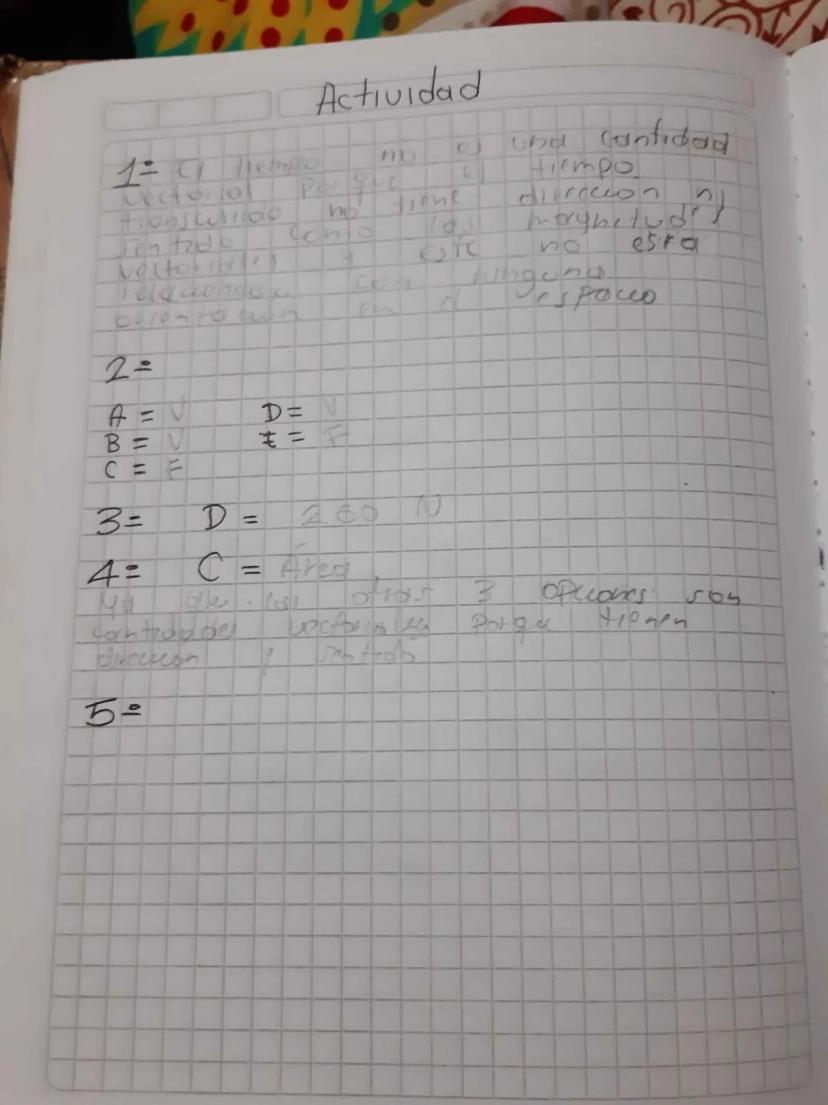 Actividad
1= el tiempo no es una cantidad
vectorial porque el tiempo
transcurrido no tiene direccion ni
sentido como las magnitudes
vectoriales y este no esta
relacionado con ninguna
orientacion en el espacio
2=
A = V D = V
B = V E = F
C = F
3= D = 260 N
4= C = Área
ya que las otras 3 opciones son
cantidades vectoriales porque tienen
direccion y sentido
5=